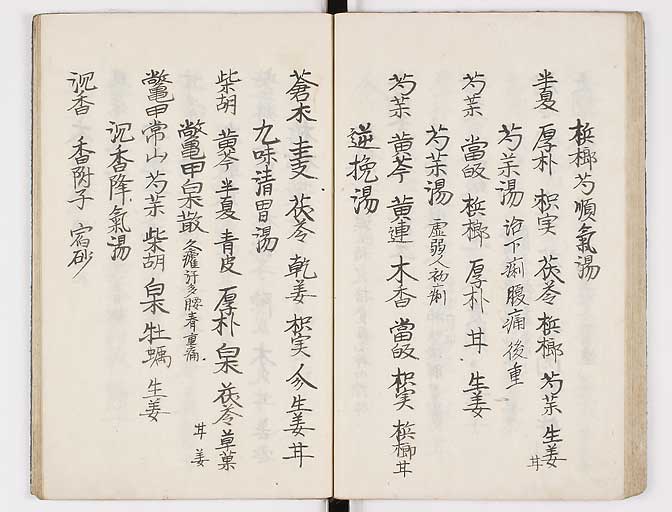 梹榔芍順氣湯
半夏 厚朴 枳実 茯苓 梹榔 芍薬 生姜 甘
芍薬湯 治下痢腹痛後重
芍薬 當皈 梹榔 厚朴 甘 生姜
芍薬湯 虚弱人初痢
芍薬 黄芩 黄連 木香 當皈 枳実 梹榔 甘
逆挽湯
蒼朮 圭支 茯苓 乾姜 枳実 人参 生姜 甘
九味清脾湯
柴胡 黄芩 半夏 青皮 厚朴 白朮 茯苓 草菓 甘 姜
鱉甲白朮散 久瘧汗多腰脊重痛
鱉甲 常山 芍薬 柴胡 白朮 牡蠣 生姜
沉香降氣湯
沉香 香附子 宿砂